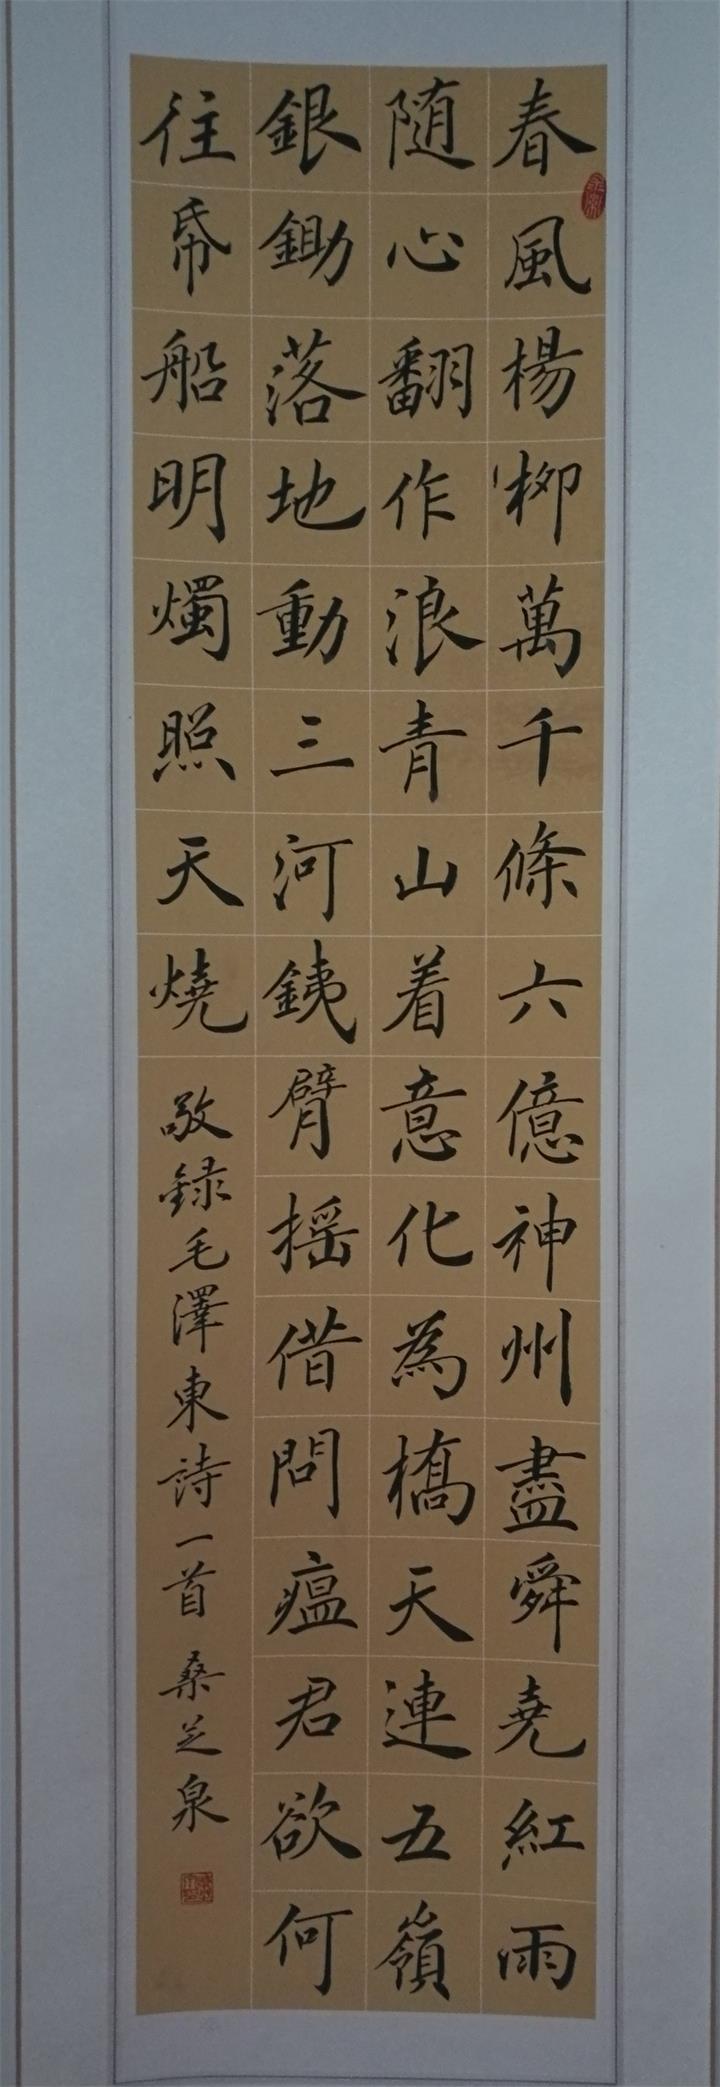 春風楊柳萬千條六億神州盡舜堯紅雨
随心翻作浪青山着意化為橋天連五嶺
銀鋤落地動三河銕臂摇借問瘟君欲何
往帋船明燭照天燒
敬録毛澤東詩一首 桑芝泉